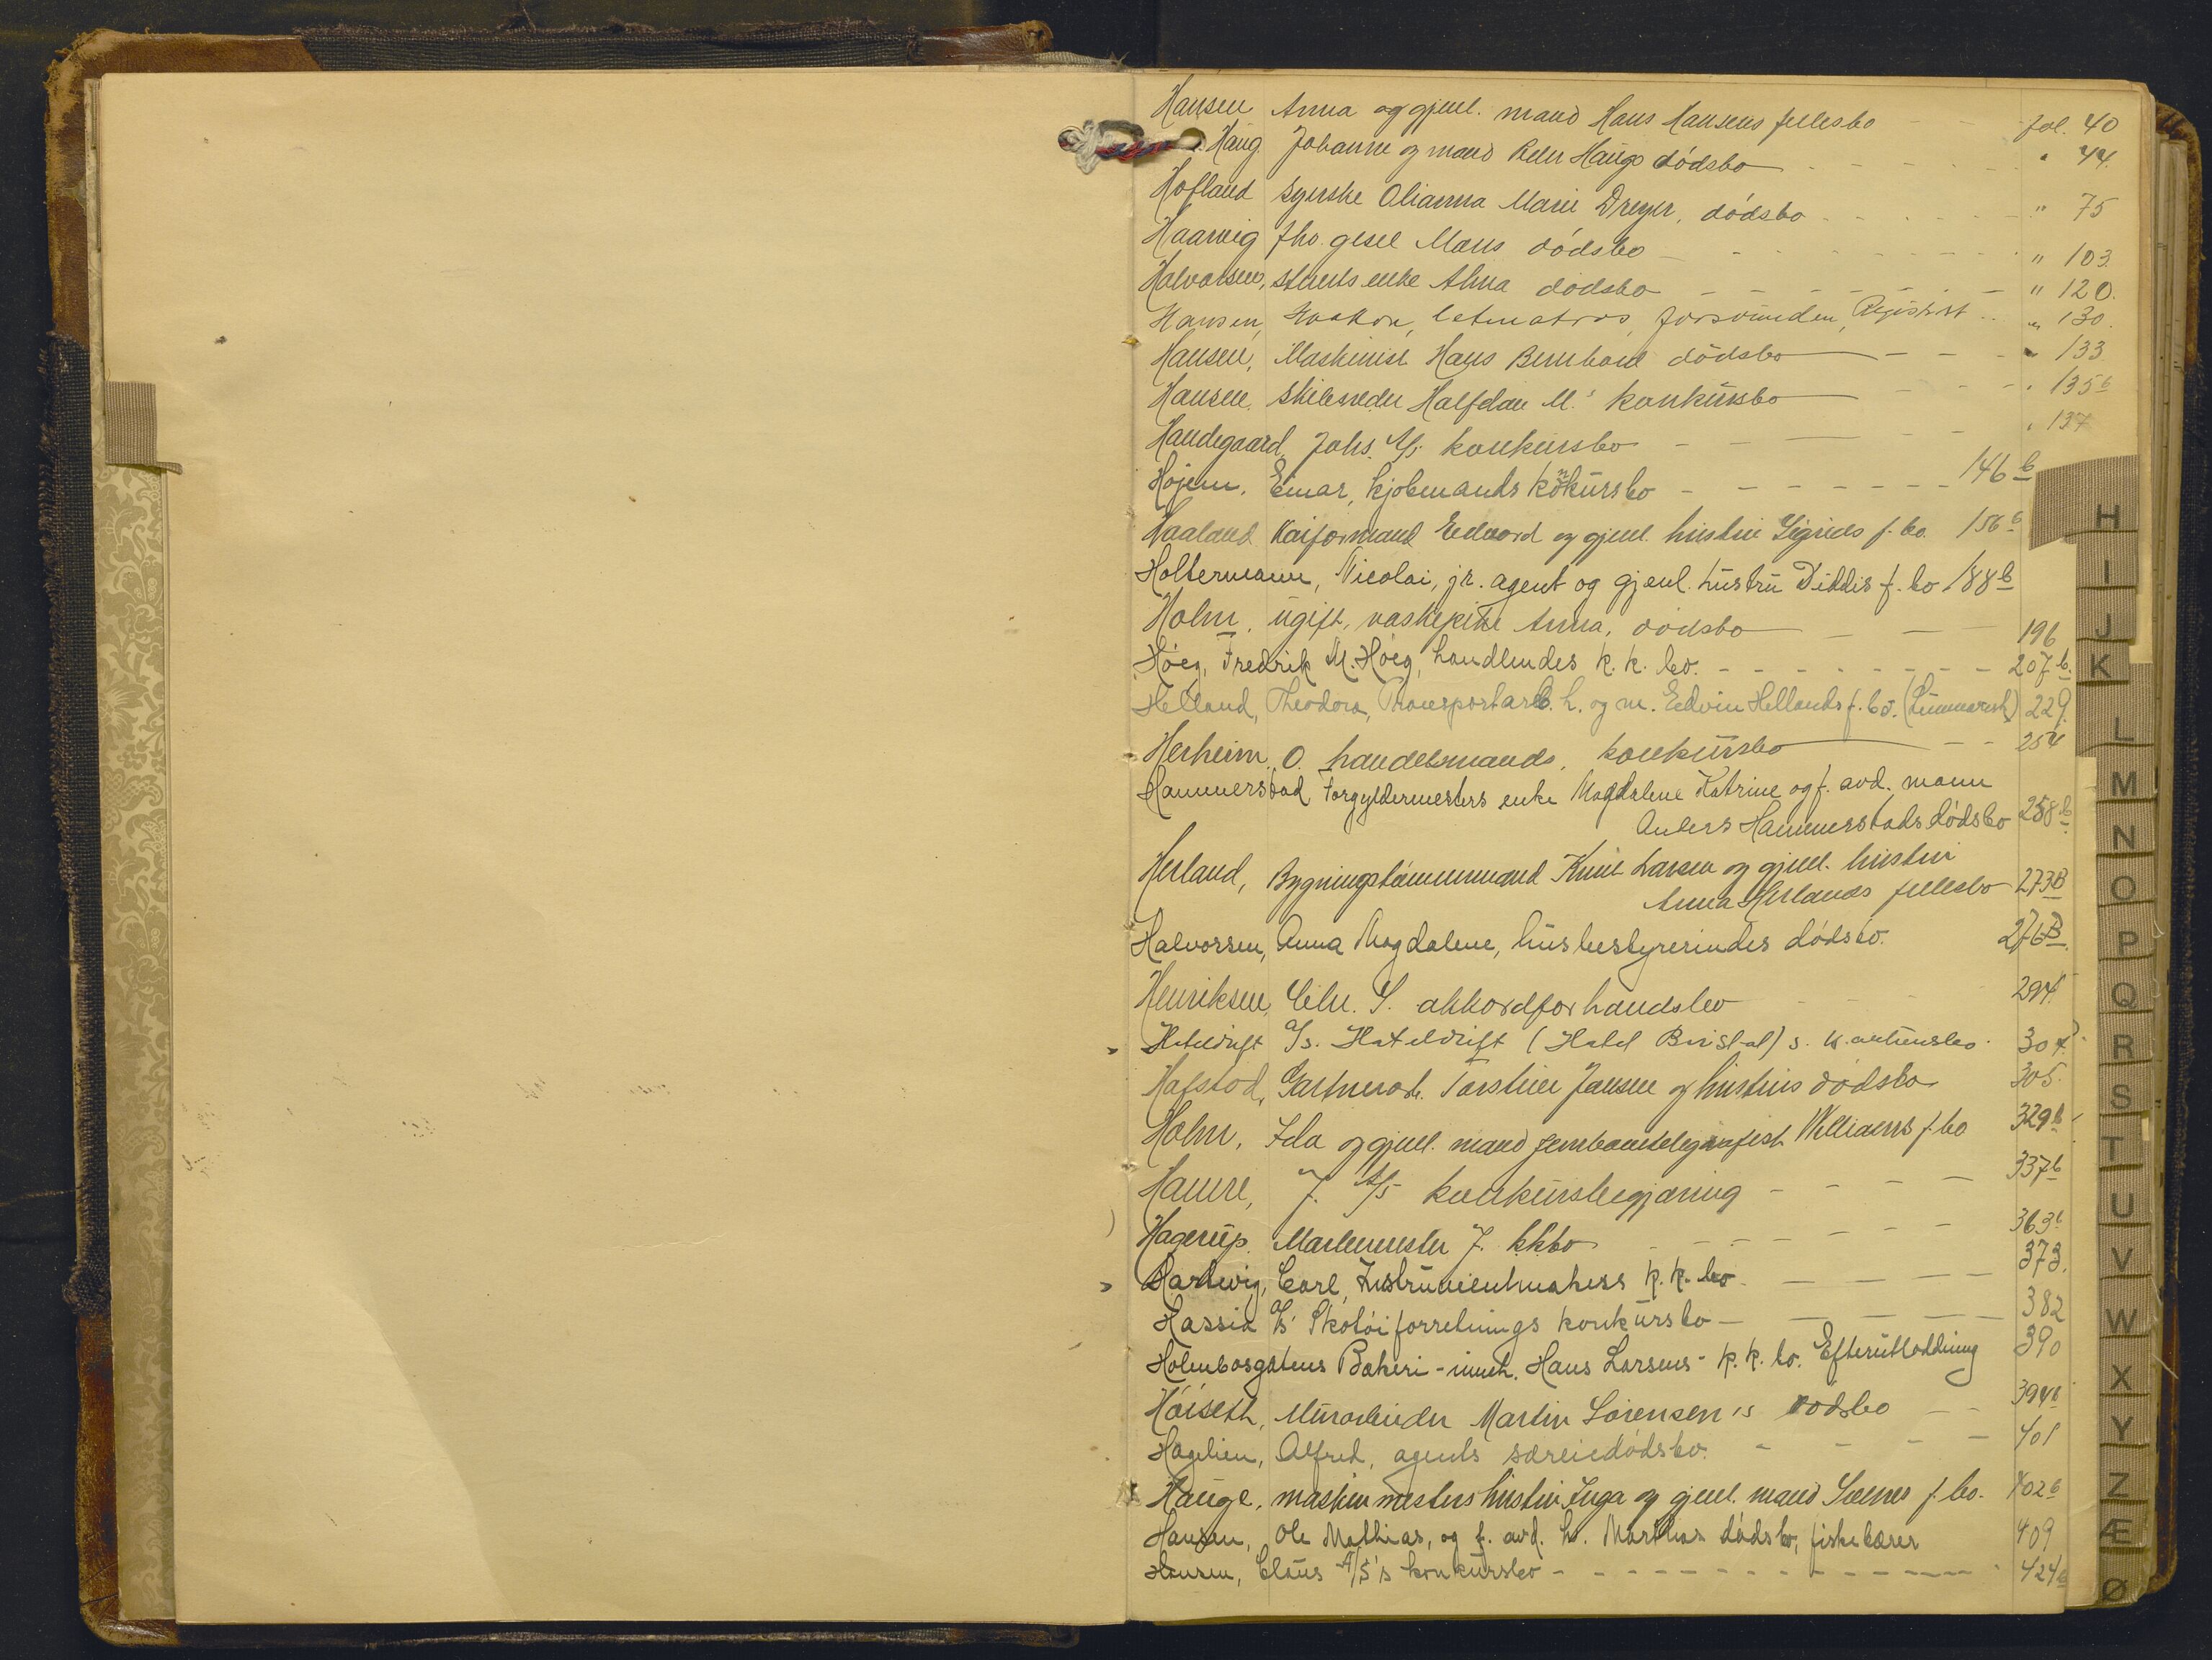 Hansen Anna og gjenl. mand Hans Hansens fellesbo - - fol. 40
Haug Johanne og mand Peder Haugs dödsbo - - - - " 44.
Hofland syerske Olianna Marie Dreyer, dödsbo - - - - " 75
Haarvig fhv. gesel Mons dödsbo - - - - " 103.
Halvorsen, stuerts enke Alma dödsbo - - - - " 120.
Hansen, Haakon, letmatros, forsvunden, Registrert .. " 130.
Hansen, Maskinist Hans Bernhard dödsbo - - - " 133
Hansen, Skibsreder Halfdan M.s konkursbo - - - " 135b
Handegaard, Johs. A/S konkursbo - - - - " 137
Höjem, Einar, kjöbmands konkursbo - - - - 146b
Haaland Kaiformand Edvard og gjenl. hustru Sigrids f. bo. 156b
Holtermann, Nicolai, jr. agent og gjenl. hustru Diddis f. bo 188b
Holm, ugift, vaskepike Anna, dödsbo - - 196
Höeg, Fredrik M. Höeg, handlendes k. k. bo. - - - - 207b.
Helland, Theodora, Transportarb. h. og m. Edvin Hellands f. bo. (Summarisk) 229.
Herheim, O. handelsmands, konkursbo - - 254
Hammerstad Forgyldermesters enke Magdalene Katrine og f. avd. mann
Anders Hammerstads dödsbo 258b.
Herland, Bygningstömmermand Knut Larsen og gjenl. hustru
Anna Herlands fellesbo 273B
Halvorsen, Anna Magdalene, husbestyrerindes dödsbo. 276B.
Henriksen, Chr. S. akkordforhandsbo - - 294.
Hoteldrift A/s. Hoteldrift (Hotel Bristol) s. konkursbo. 304.
Hafstad, Gartnerarb. Torstein Jansen og hustrus dödsbo 305.
Holm, Ida og gjenl. mand jernbanetelegrafist Williams f. bo 329b
Hamre, J. A/S konkursbegjæring - - - - 337b
Hagerup, Malermester J. kkbo - - - - 363b
Hartwig, Carl, Instrumentmakers k. k. bo. - - - - 373.
Hassia A/s' Skotöiforretnings konkursbo - - - 382
Holenbosgatens Bakeri - inneh. Hans Larsens - k. k. bo. Efterutlodding 390
Höiseth, Murarbeider Martin Sörensen's dödsbo - - 394b
Hagelien, Alfred, agents særeiedödsbo. - - - - 401
Hauge, maskinmesters hustru Inga og gjenl. mand f. bo. 402b
Hansen, Ole Mathias, og f. avd. h. Marthas dödsbo, fiskebærer 409
Hansen, Claus A/S's konkursbo - - - - 424b
H
I
J
K
L
M
N
O
P
Q
R
S
T
U
V
W
X
Y
Z
Æ
Ø